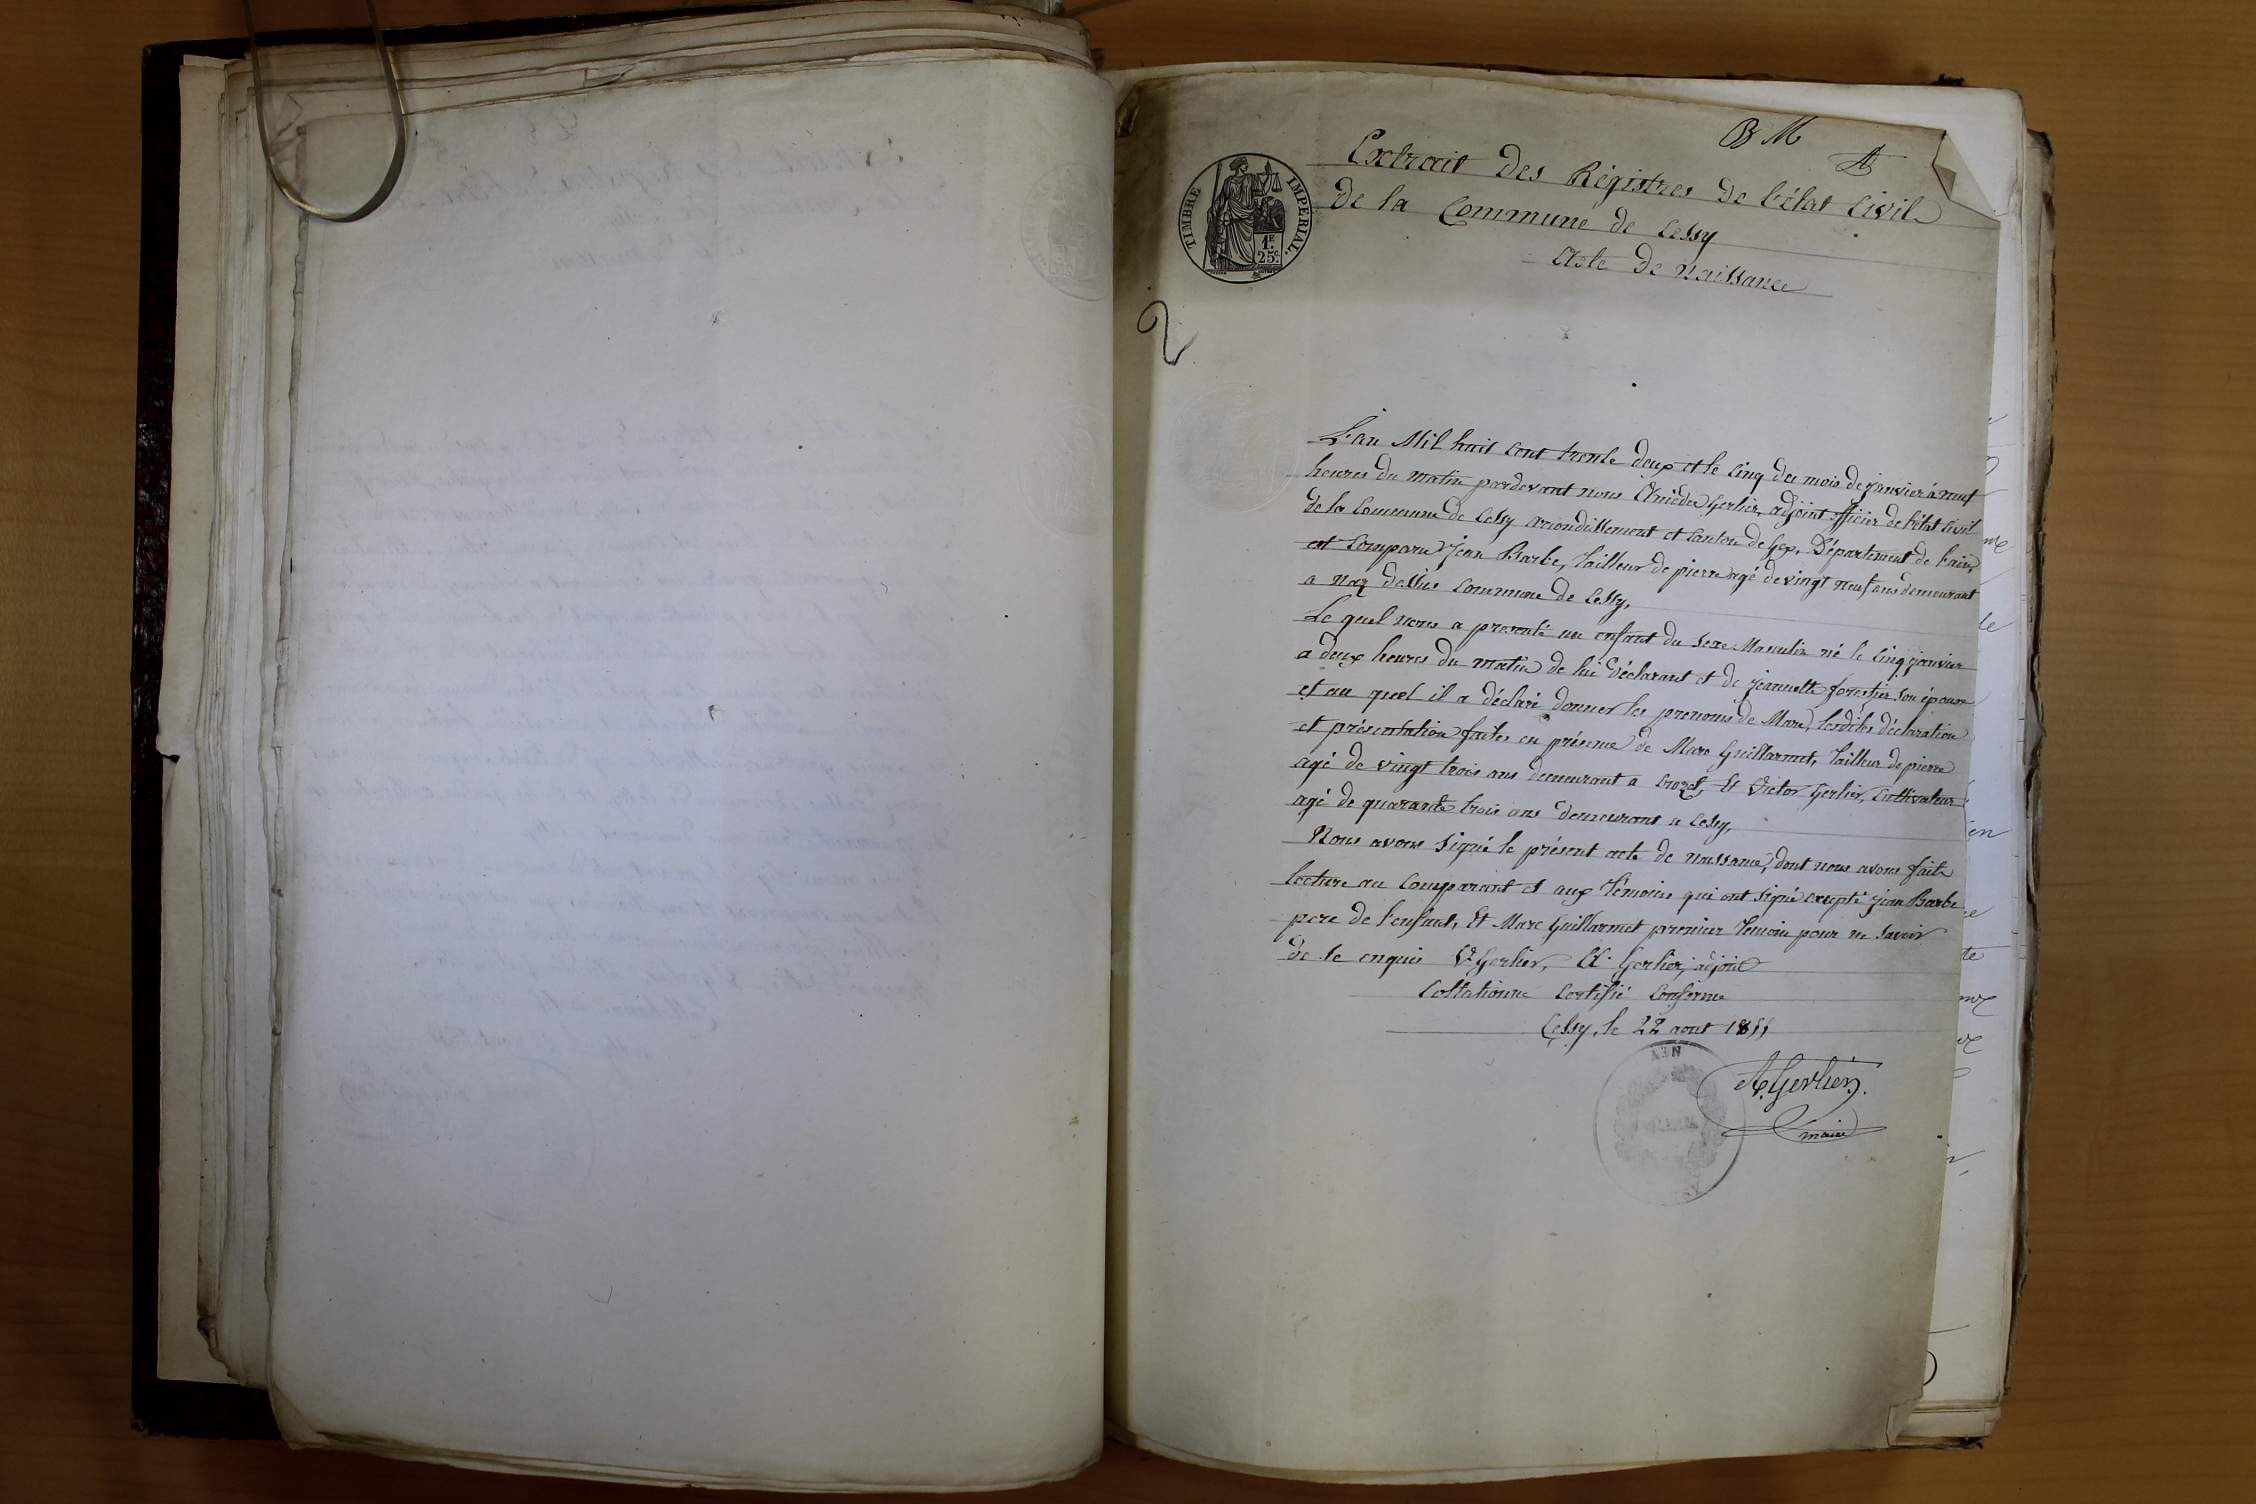 B M
A
TIMBRE IMPERIAL.
1F 25c.
Extrait des Régistres de l'état Civil
de la Commune de Cessy
Acte de Naissance
2
L'an Mil huit cent trente deux et le cinq du mois de janvier à neuf
heures du matin pardevant nous Amédée Gerlier, adjoint officier de l'état civil
de la Commune de Cessy arrondissement et Canton de Gex, Département de l'ain,
est comparu Jean Barbe, tailleur de pierre agé de vingt neuf ans demeurant
a Naz dessus Commune de Cessy,
Le quel nous a presenté un enfant du sexe Masculin né le cinq janvier
a deux heures du matin de lui déclarant et de jeannette forestier son épouse
et au quel il a déclaré donner les prenoms de Marc, lesdites déclaration
et présentation faites en présence de Marc Guillarmet, tailleur de pierre
agé de vingt trois ans demeurant a Crozet, Et Victor Gerlier, Cultivateur
agé de quarante trois ans demeurant a Cessy,
Nous avons signé le présent acte de naissance, dont nous avons fait
lecture au Comparant et aux témoins qui ont signé excepté jean Barbe
pere de l'enfant, Et Marc Guillarmet premier temoin pour ne savoir
de ce enquis V. Gerlier, A. Gerlier, adjoint
Collationné Certifié Conforme
Cessy, le 22 aout 1855
A. Gerlier.
maire